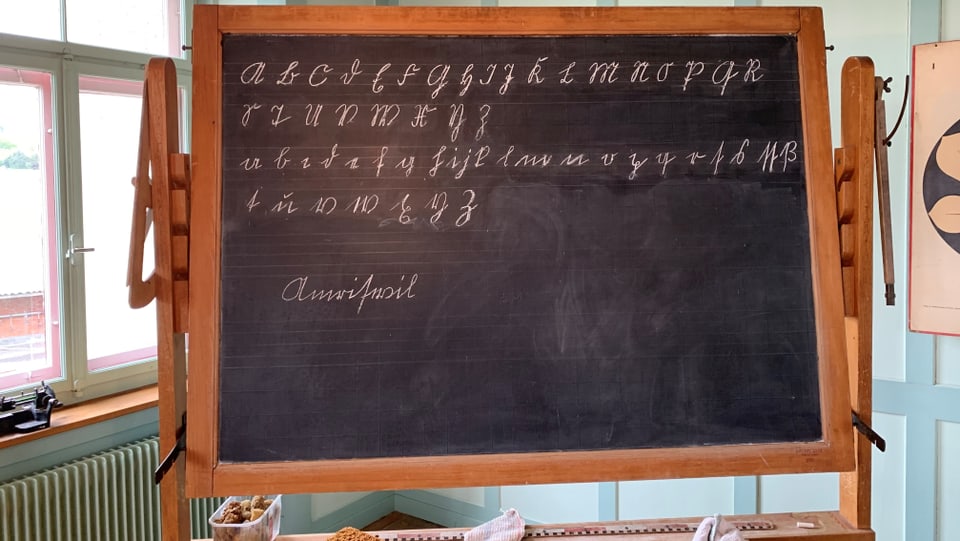 A B C D E F G H I J K L M N O P Q R
S T U V W X Y Z
a b c d e f g h i j k l m n o p q r ſ s ſſ ß
t u v w x y z
Amriſwil